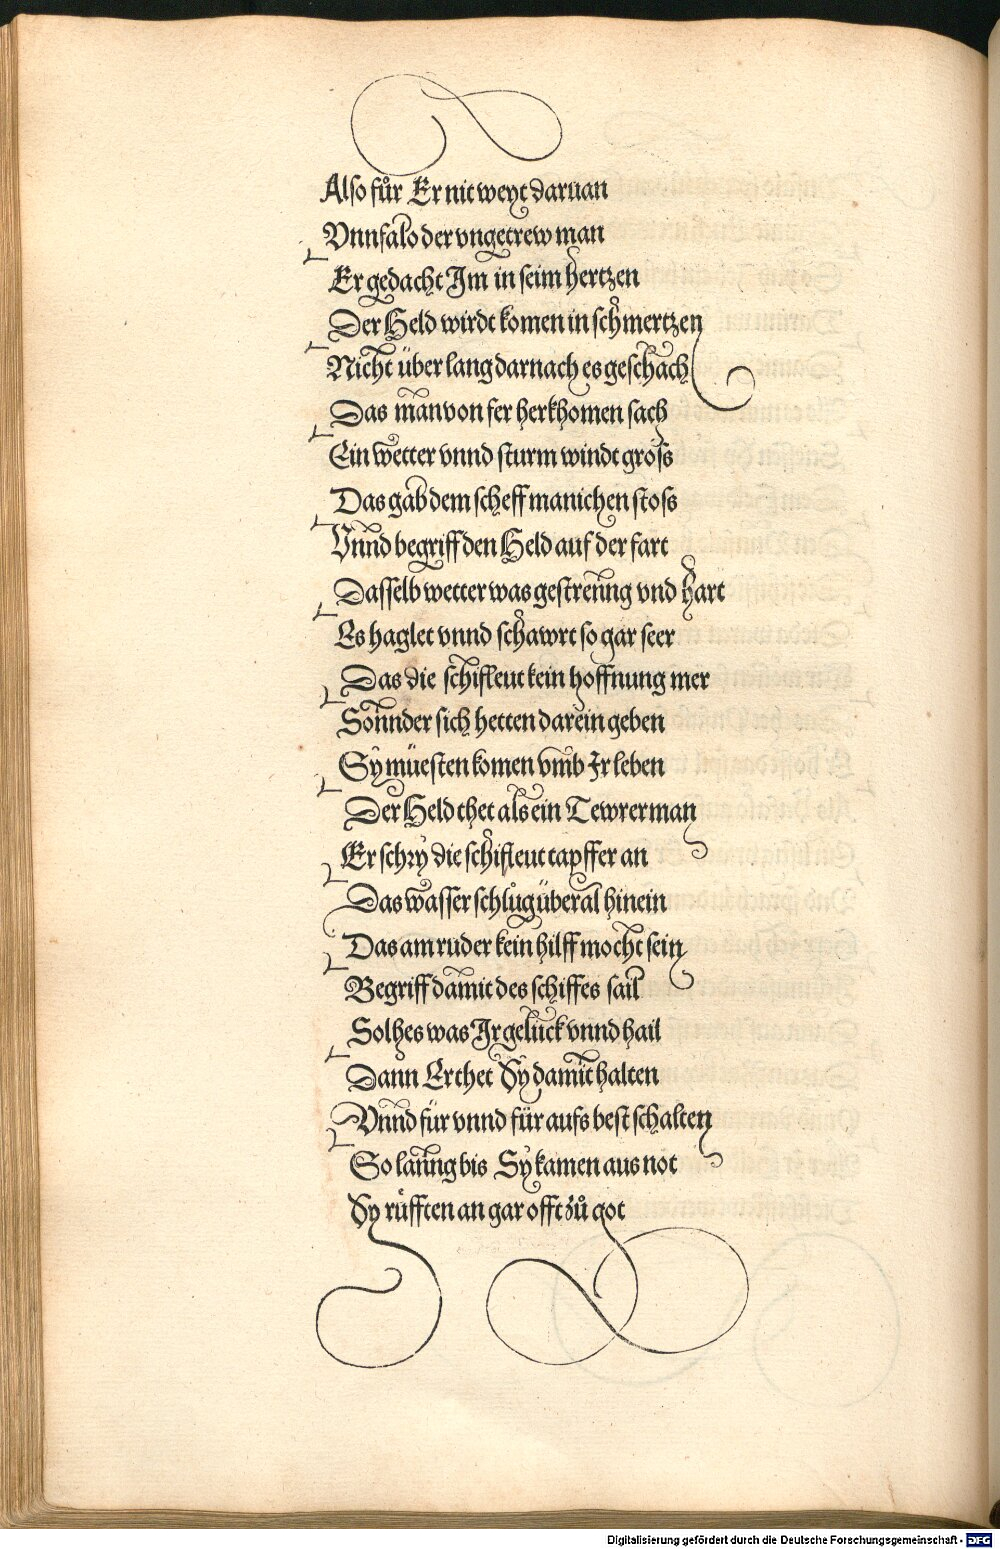 Also fůr Er nit weyt daruan
Vnnfalo der vngetrew man
Er gedacht Im in seim hertzen
Der Held wirdt komen in schmertzen
Nicht über lang darnach es geschach
Das man von fer herkhomen sach
Ein wetter vnnd sturm windt gross
Das gab dem scheff manichen stoss
Vnnd begriff den Held auf der fart
Dasselb wetter was gestrenng vnd hart
Es haglet vnnd schawrt so gar seer
Das die schifleut kein hoffnung mer
Sonnder sich hetten darein geben
Sy müesten komen vmb Ir leben
Der Held thet als ein Tewrer man
Er schry die schifleut tapffer an
Das wasser schlůg überal hinein
Das am ruder kein hilff mocht sein
Begriff damit des schiffes sail
Solhes was Ir gelück vnnd hail
Dann Er thet Sy damit halten
Vnnd für vnnd für aufs best schalten
So lanng bis Sy kamen aus not
Sy rüfften an gar offt zů got
Digitalisierung gefördert durch die Deutsche Forschungsgemeinschaft - DFG